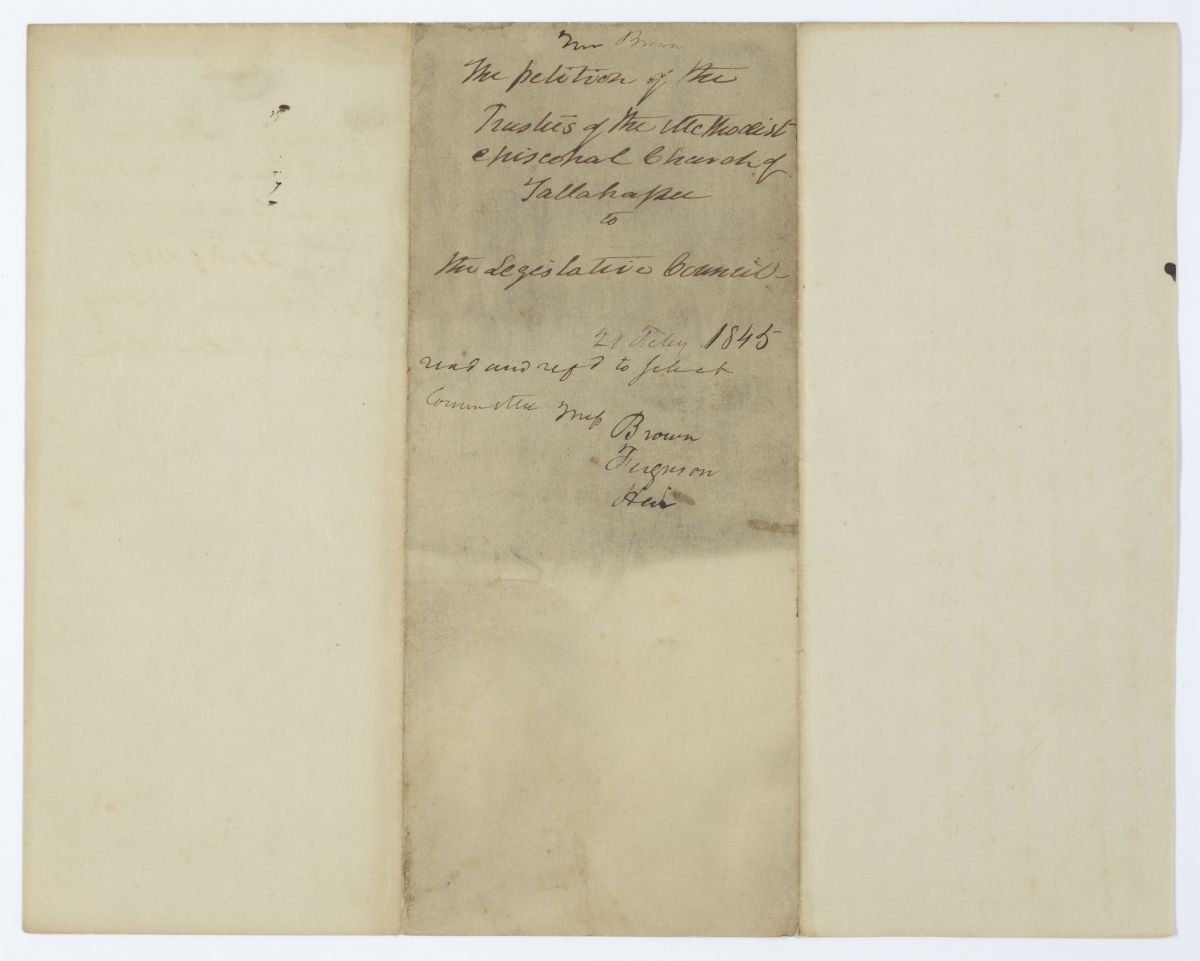 Mr Brown
The petition of the
Trustees of the Methodist
episcopal Church of
Tallahassee
to
the Legislative Council-
21 Feby 1845
read and refd to select
Committee Mess
Brown
Ferguson